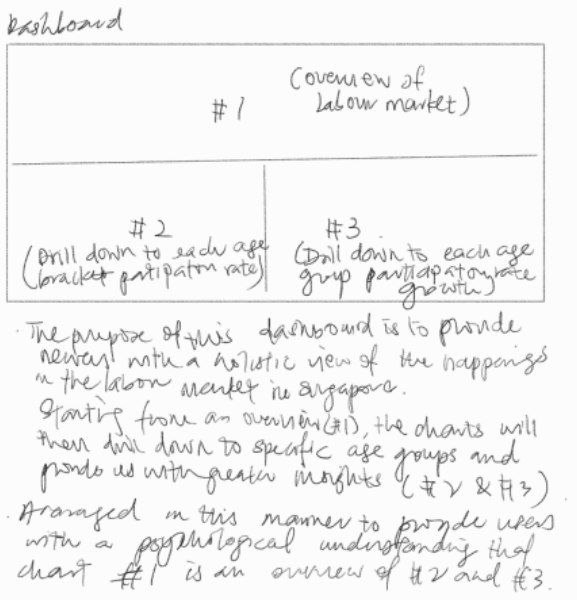 Dashboard
(overview of
#1 labour market)
#2 #3
(Drill down to each age (Drill down to each age
bracket patipaton rate) group participaton rate
growth)
· The purpose of this dashboard is to provide
with a holistic view of the happenings
in the labour market in Singapore.
Starting from an overview (#1), the charts will
then drill down to specific age groups and
provide us with greater insights (#2 & #3)
· Arranged in this manner to provide users
with a psychological understanding that
chart #1 is an overview of #2 and #3.